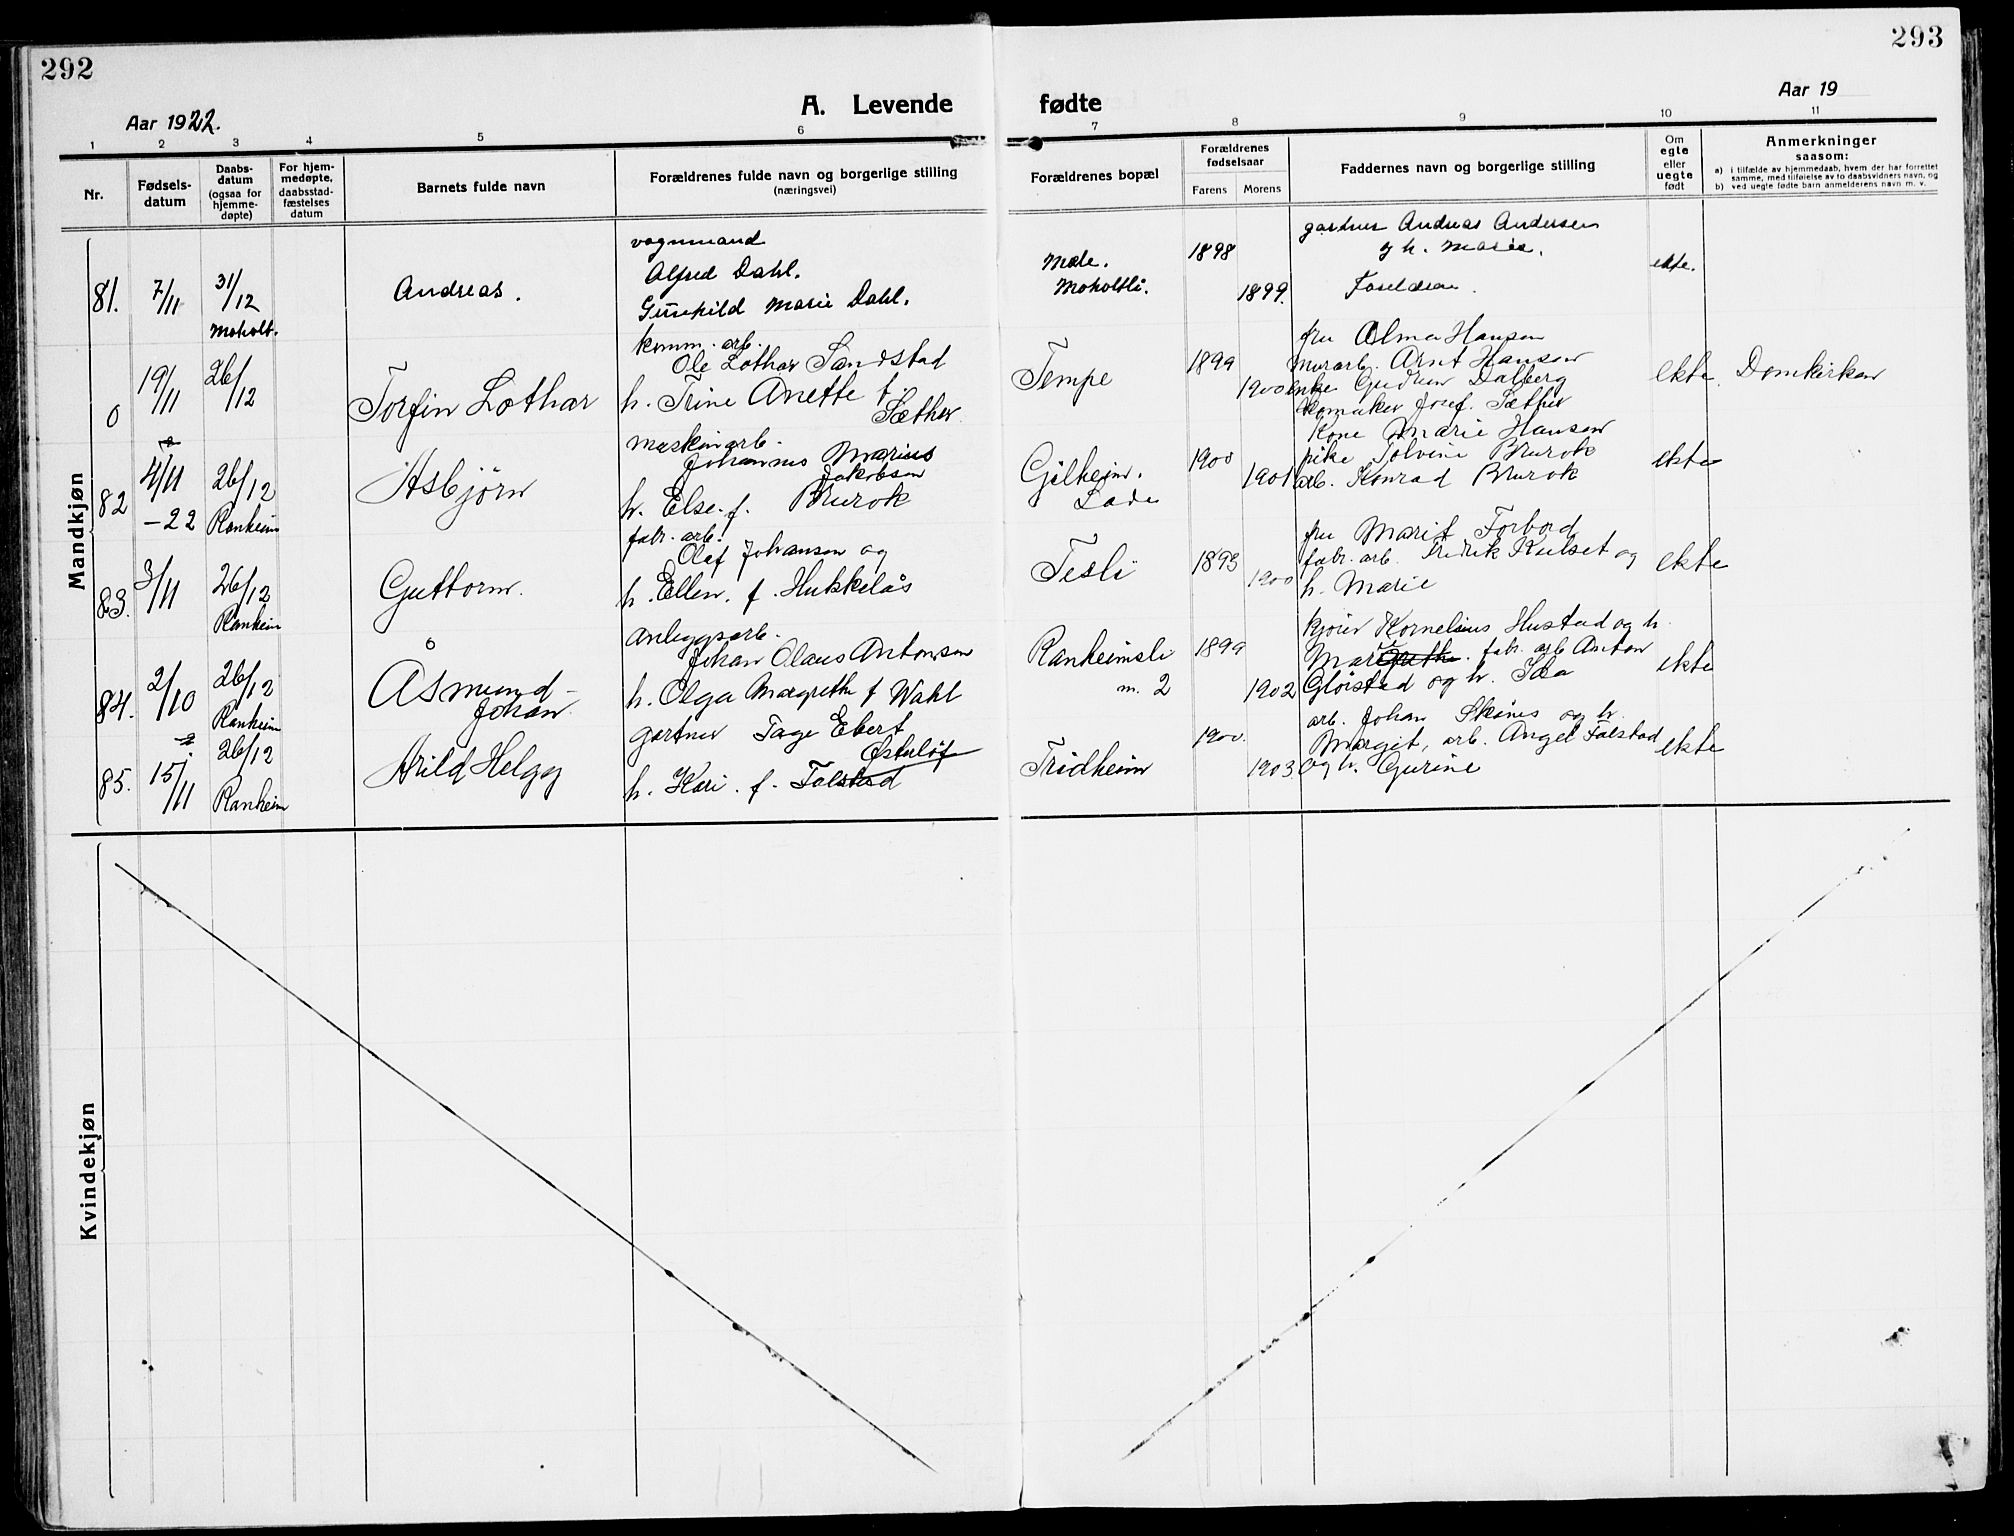 292
293
Aar 1922.
A. Levende fødte
Aar 19
1 2 3 4 5 6 7 8 9 10 11
Nr.
Fødsels-
datum
Daabs-
datum
(ogsaa for
hjemme-
døpte)
For hjem-
medøpte,
daabsstad-
fæstelses
datum
Barnets fulde navn
Forældrenes fulde navn og borgerlige stilling
(næringsvei)
Forældrenes bopæl
Forældrenes
fødselsaar
Farens Morens
Faddernes navn og borgerlige stilling
Om
egte
eller
uegte
født
Anmerkninger
saasom:
a) i tilfælde av hjemmedaab, hvem der har forrettet
samme, med tilføielse av to daabsvidners navn, og
b) ved uegte fødte barn anmelderens navn m. v.
Mandkjøn
81.
7/11
31/12
Moholt.
Andreas.
vognmand
Alfred Dahl.
Gunhild Marie Dahl.
Moholtli.
1898
1899.
gartner Andreas Andersen
og h. Marie.
Foreldrene.
ekte.
0
19/11
26/12
Torfin Lothar
komm. arb.
Ole Lothar Sandstad
h. Trine Anette f.
Sæther
Tempe
1899
1900
fru Alma Hansen
Murarb. Arnt Hansen
enke Gudrun Dalberg
Josef Sæther
Kone Marie Hansen
ekte.
Domkirken
82
4/11
-22
26/12
Ranheim
Asbjørn
maskinarb.
Johannes Marius
Jakobsen
h. Else f. Brurok
Gilheim.
Lade
1900
1901
pike Tolvine Brurok
arb. Konrad Brurok
ekte
83.
3/11
26/12
Ranheim
Guttorm.
fabr. arb.
Olaf Johansen og
h. Ellen. f. Hukkelås
Tesli
1893
1900
fru Marit Forbord
fabr. arb. Fredrik Kulset og
h. Marie
ekte
84.
2/10
26/12
Ranheim
Åsmund
Johan
anleggsarb.
Johan Olaus Antonsen
h. Olga Margrethe f Wahl
Ranheimsli
m. 2
1899
1902
kjører Kornelius Hustad og h.
fabr. arb Anton
Gløistad og h. Ida
ekte
85.
15/11
26/12
Ranheim
Arild Helgy
gartner Tage Ebert
Østerløf
h. Kari. f. Falstad
Fridheim
1900.
1903
arb. Johan Skånes og h.
Margit, arb. Angel Falstad
og h. Gurine
ekte
Kvindekjøn